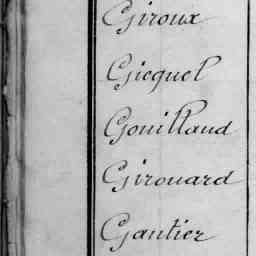 Giroux
Gicquel
Gouilland
Girouard
Gautier